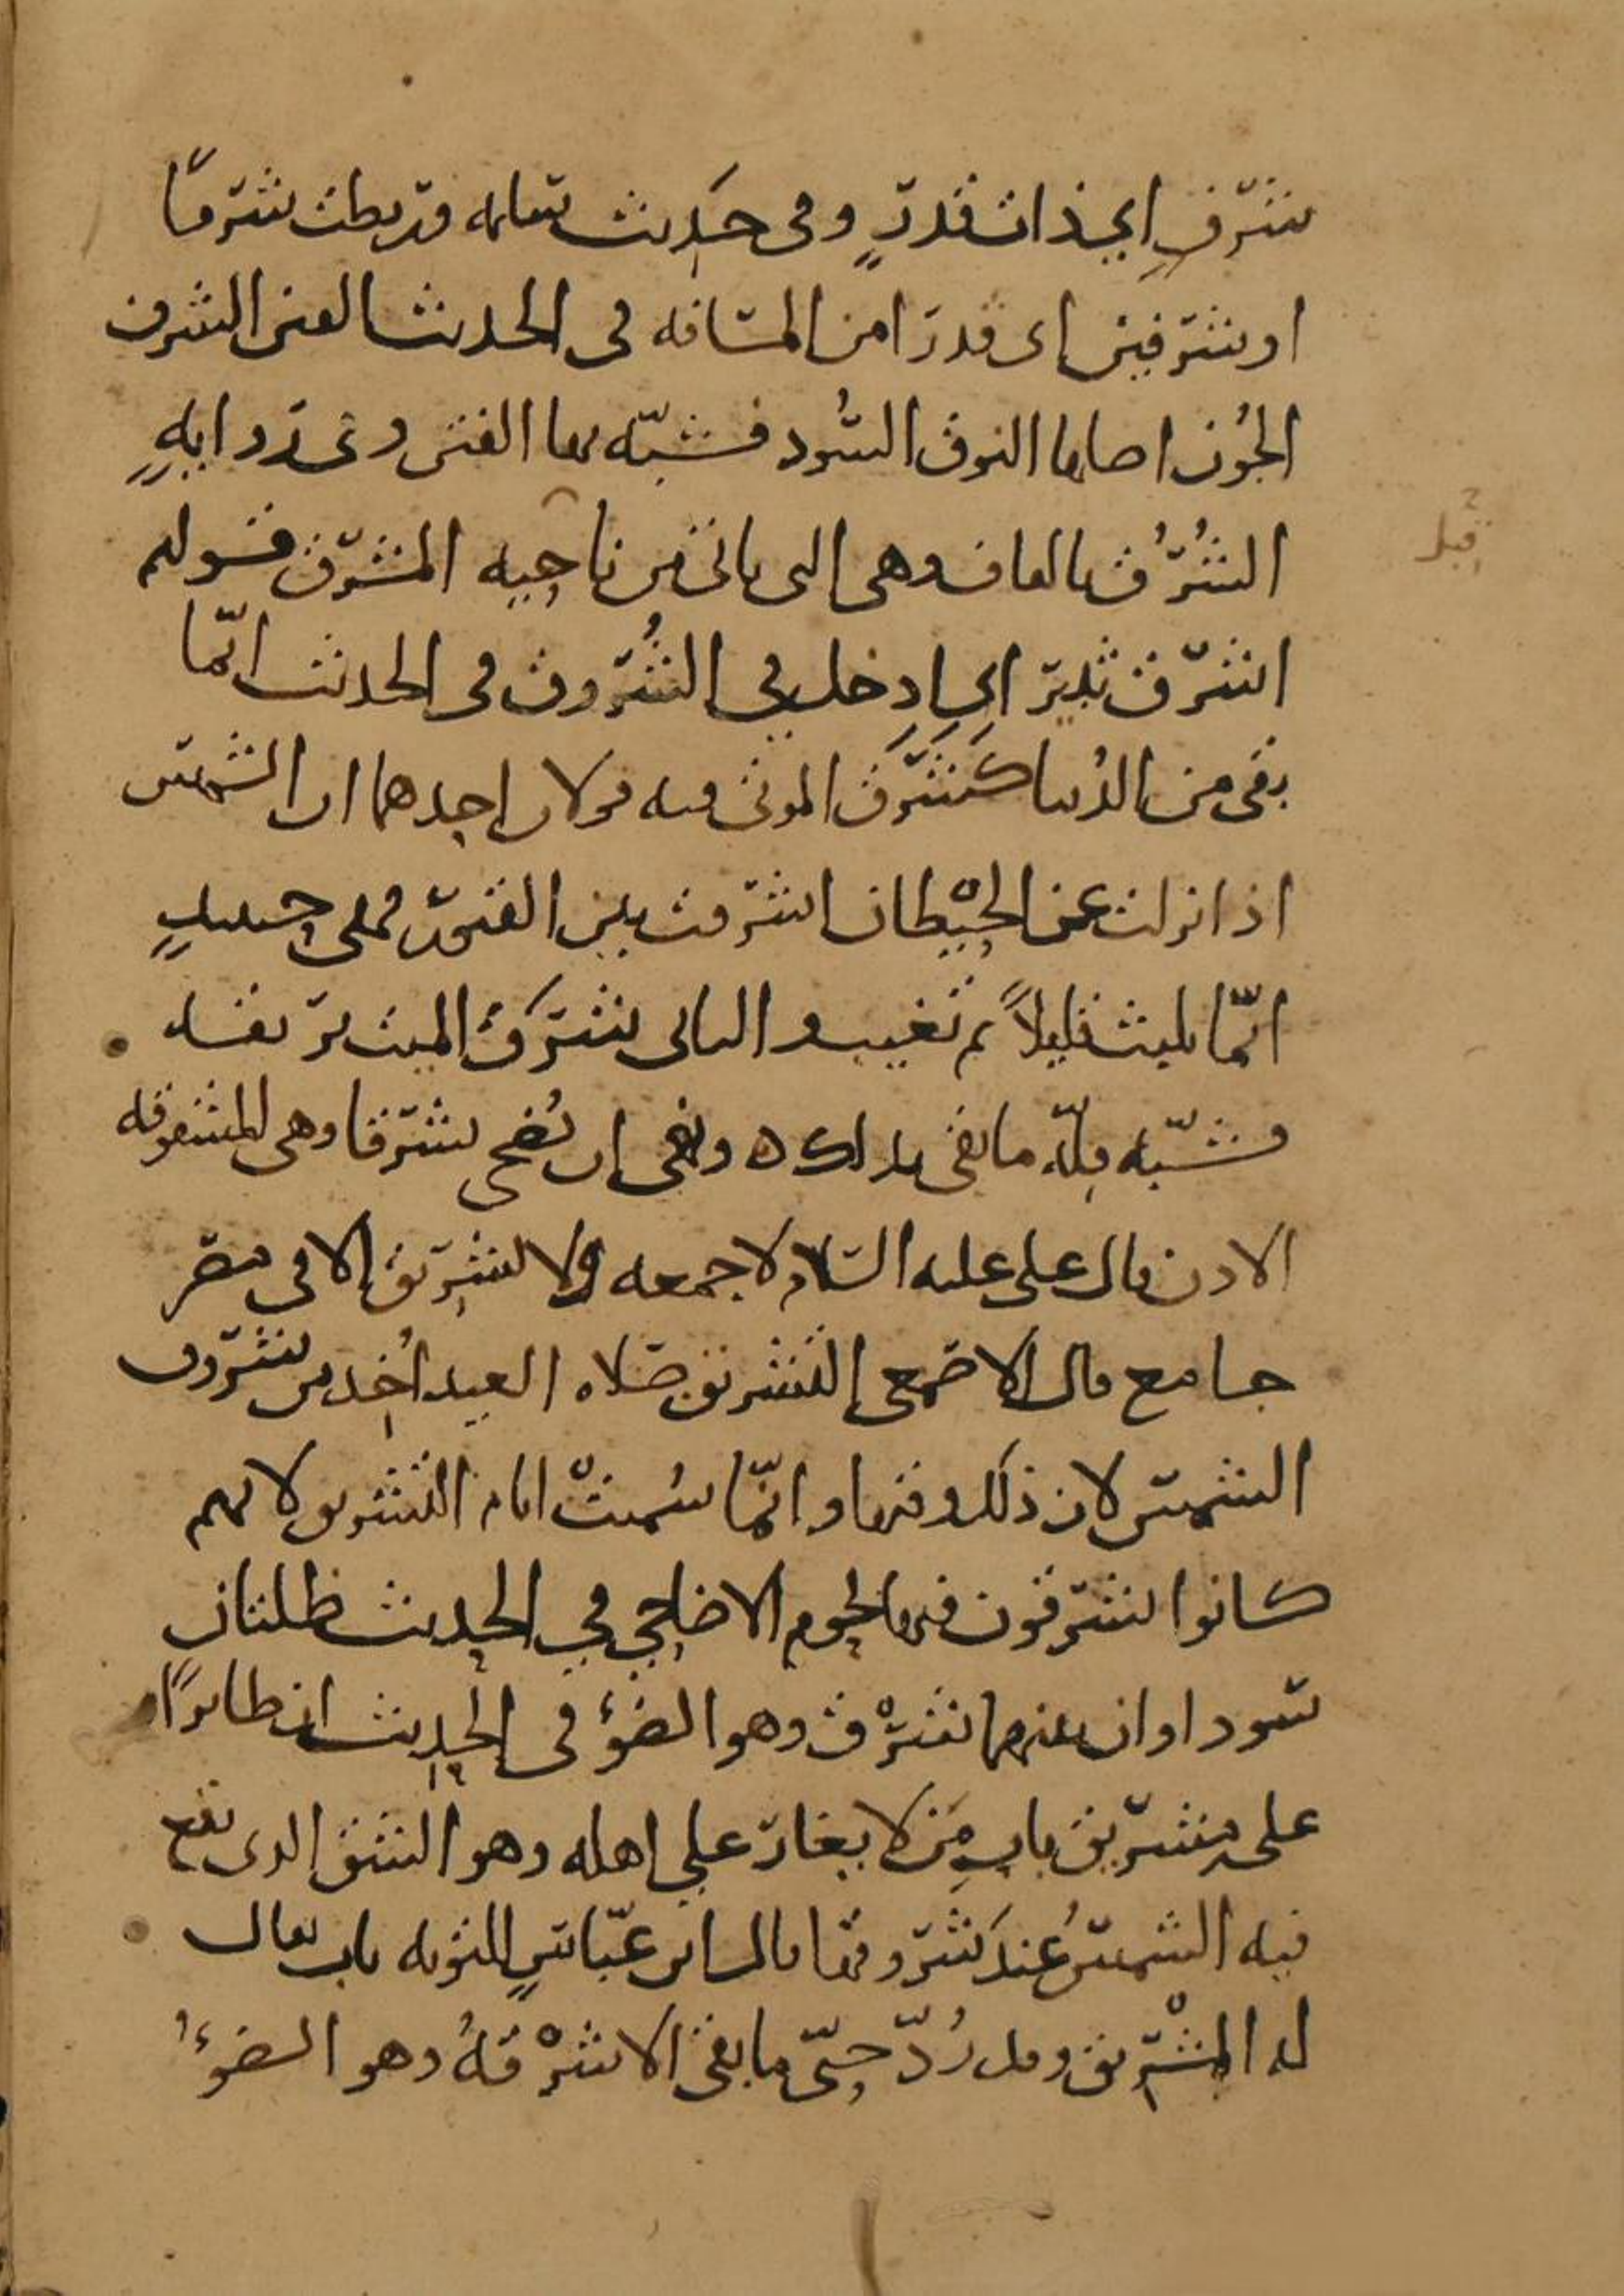 شرف اي ذات قدر وفي حديث سلمه قد بطت شرفا
او شرفين اي قدرا من المسافه في الحديث الفتن الشرف
الجون اصلها النوق السود فشبه بها الفتن وفي روايه
الشرق بالقاف وهي التي تاتي من ناحيه المشرق قولهم
اشرق ثبير اي ادخل في الشروق في الحديث انما
بقي من الدنيا كشرق الموتى فيه قولان احدهما ان الشمس
اذا نزلت عن الحيطان اشرقت بين القبور فهي حينئذ
انما تلبث قليلا ثم تغيب والثاني شرق الميت بريقه
فشبه قله ما بقي بذلك ه ونهي ان يضحى بشرقا وهي المشقوقه
الاذن قال علي عليه السلام لا جمعه ولا تشريق الا في مصر
جامع قال الاصمعي التشريق صلاه العيد اخذ من شروق
الشمس لان ذلك وقتها وانما سميت ايام التشريق لانهم
كانوا يشرقون فيها لحوم الاضاحي في الحديث ظلتان
سوداوان بينهما شرق وهو الضوء في الحديث ان طائرا
على مشريق باب من لا يغار على اهله وهو الشق الذي تقع
فيه الشمس عند شروقها قال ابن عباس للتوبه باب يقال
له المشريق وقد رد حتى ما بقي الا شرقه وهو الضوء
قبل